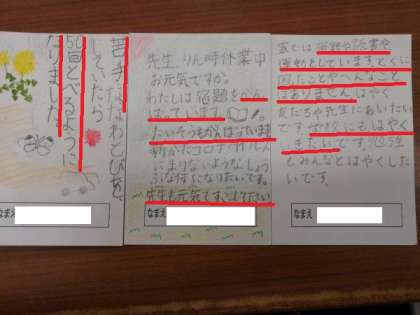 苦手ななわとびを、
していたら
50回とべるように
なりました。
なまえ
先生、りん時休業中
お元気ですか。
わたしは宿題をがん
ばっています。
たいそうもがんばっています。
新がたコロナウイルス
にまけないような
じょう
ぶな体になりたいです。
先生も元気ですごしてください
なまえ
家では宿題や読書や
運動をしています。とくに
困ったことやへんなこと
はありません。はやく
友だちや先生にあいたい
です。学校にもはやく
いきたいです。
もみんなとはやくした
いです。
なまえ